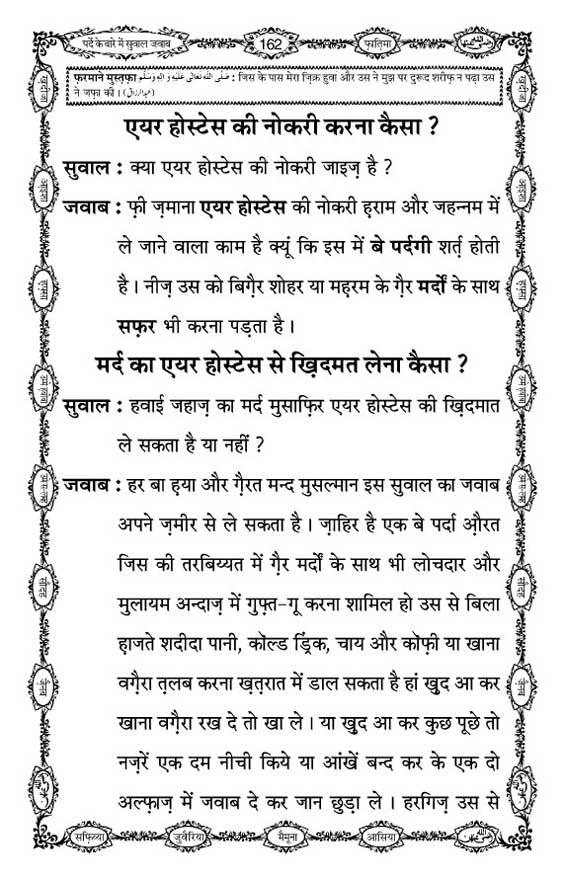 पर्दे के बारे में सुवाल जवाब
162
फ़ातिमा
फ़रमाने मुस्तफ़ा صَلَّى اللهُ تَعَالٰى عَلَيْهِ وَاٰلِهٖ وَسَلَّم : जिस के पास मेरा ज़िक्र हुवा और उस ने मुझ पर दुरूद शरीफ़ न पढ़ा उस
ने जफ़ा की। (عبدالرزاق)
एयर होस्टेस की नोकरी करना कैसा ?
सुवाल : क्या एयर होस्टेस की नोकरी जाइज़ है ?
जवाब : फ़ी ज़माना एयर होस्टेस की नोकरी ह़राम और जहन्नम में
ले जाने वाला काम है क्यूं कि इस में बे पर्दगी शर्त़ होती
है। नीज़ उस को बिग़ैर शोहर या महरम के ग़ैर मर्दों के साथ
सफ़र भी करना पड़ता है।
मर्द का एयर होस्टेस से ख़िदमत लेना कैसा ?
सुवाल : हवाई जहाज़ का मर्द मुसाफ़िर एयर होस्टेस की ख़िदमात
ले सकता है या नहीं ?
जवाब : हर बा ह़या और ग़ैरत मन्द मुसल्मान इस सुवाल का जवाब
अपने ज़मीर से ले सकता है। ज़ाहिर है एक बे पर्दा औ़रत
जिस की तरबिय्यत में ग़ैर मर्दों के साथ भी लोचदार और
मुलायम अन्दाज़ में गुफ़्त-गू करना शामिल हो उस से बिला
ह़ाजते शदीदा पानी, कॉल्ड ड्रिंक, चाय और कॉफ़ी या खाना
वग़ैरा त़लब करना ख़त़रात में डाल सकता है हां खुद आ कर
खाना वग़ैरा रख दे तो खा ले। या खुद आ कर कुछ पूछे तो
नज़रें एक दम नीची किये या आंखें बन्द कर के एक दो
अल्फ़ाज़ में जवाब दे कर जान छुड़ा ले। हरगिज़ उस से
सफ़िय्या
जुवैरिया
मैमूना
आसिया